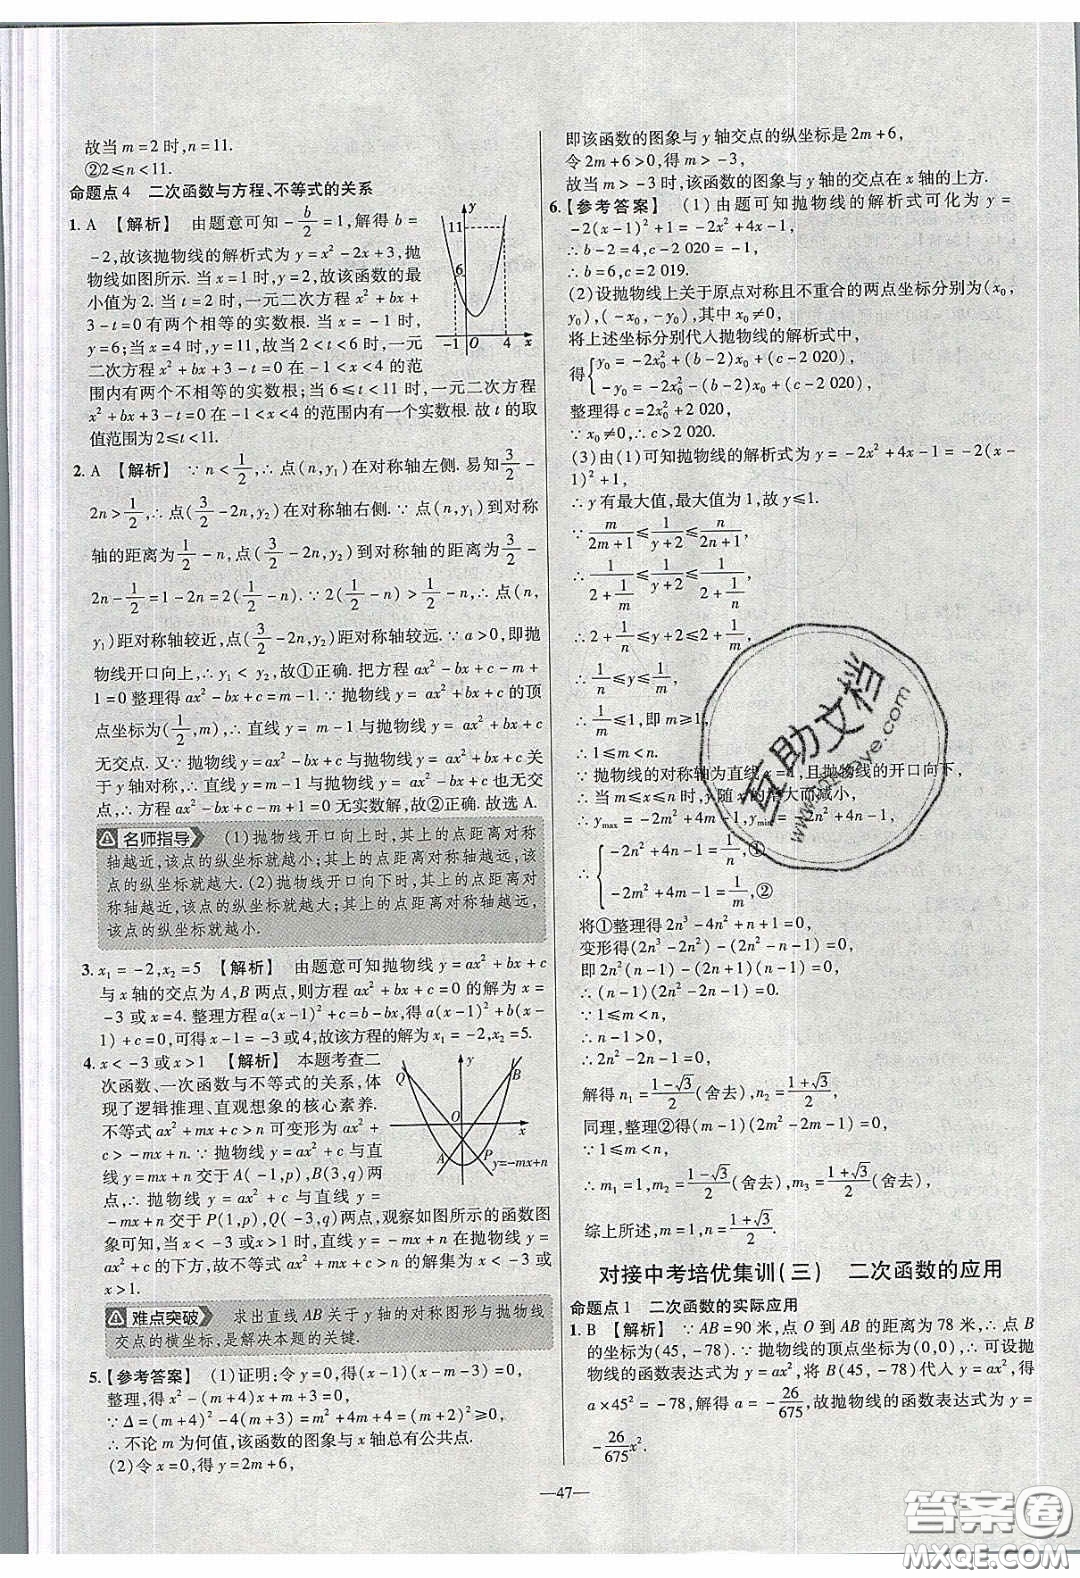 故当 m=2 时,n=11.
②2≤n<11.
命题点4 二次函数与方程、不等式的关系
1. A 【解析】 由题意可知 -b/2=1,解得 b=
-2,故该抛物线的解析式为 y=x²-2x+3,抛
物线如图所示. 当 x=1 时,y=2,故该函数的最
小值为 2. 当 t=2 时,一元二次方程 x²+bx+
3-t=0 有两个相等的实数根. 当 x=-1 时,
y=6;当 x=4 时,y=11,故当 2<t<6 时,一元
二次方程 x²+bx+3-t=0 在 -1<x<4 的范
围内有两个不相等的实数根;当 6≤t<11 时,一元二次方程
x²+bx+3-t=0 在 -1<x<4 的范围内有一个实数根. 故 t 的取
值范围为 2≤t<11.
y
11
6
-1 O 4 x
2. A 【解析】 ∵n<1/2,∴点(n,y₁)在对称轴左侧. 易知 3/2-
2n>1/2,∴点(3/2-2n,y₂)在对称轴右侧. ∵点(n,y₁)到对称
轴的距离为 1/2-n,点(3/2-2n,y₂)到对称轴的距离为 3/2-
2n-1/2=1-2n=2(1/2-n). ∵1/2-n<2(1/2-n),∴点(n,
y₁)距对称轴较近,点(3/2-2n,y₂)距对称轴较远. ∵a>0,即抛
物线开口向上,∴y₁<y₂,故①正确. 把方程 ax²-bx+c-m+
1=0 整理得 ax²-bx+c=m-1. ∵抛物线 y=ax²-bx+c 的顶
点坐标为(1/2,m),∴直线 y=m-1 与抛物线 y=ax²-bx+c
无交点. 又∵抛物线 y=ax²-bx+c 与抛物线 y=ax²+bx+c 关
于 y 轴对称,∴直线 y=m-1 与抛物线 y=ax²+bx+c 也无交
点,∴方程 ax²+bx+c-m+1=0 无实数解,故②正确. 故选 A.
名师指导 (1)抛物线开口向上时,其上的点距离对称
轴越近,该点的纵坐标就越小;其上的点距离对称轴越远,该
点的纵坐标就越大. (2)抛物线开口向下时,其上的点距离对
称轴越近,该点的纵坐标就越大;其上的点距离对称轴越远,
该点的纵坐标就越小.
3. x₁=-2,x₂=5 【解析】 由题意可知抛物线 y=ax²+bx+c
与 x 轴的交点为 A,B 两点,则方程 ax²+bx+c=0 的解为 x=
-3 或 x=4. 整理方程 a(x-1)²+c=b-bx,得 a(x-1)²+b(x-
1)+c=0,可得 x-1=-3 或 4,故该方程的解为 x₁=-2,x₂=5.
4. x<-3 或 x>1 【解析】 本题考查二
次函数、一次函数与不等式的关系,体
现了逻辑推理、直观想象的核心素养.
不等式 ax²+mx+c>n 可变形为 ax²+
c>-mx+n. ∵抛物线 y=ax²+c 与直
线 y=mx+n 交于 A(-1,p),B(3,q)两
点,∴抛物线 y=ax²+c 与直线 y=
-mx+n 交于 P(1,p),Q(-3,q)两点,观察如图所示的函数图
象可知,当 x<-3 或 x>1 时,直线 y=-mx+n 在抛物线 y=
ax²+c 的下方,故不等式 ax²+mx+c>n 的解集为 x<-3 或
x>1.
y
Q B
O x
A P y=-mx+n
难点突破 求出直线 AB 关于 y 轴的对称图形与抛物线
交点的横坐标,是解决本题的关键.
5. 【参考答案】 (1)证明:令 y=0,得(x-1)(x-m-3)=0,
整理,得 x²-(m+4)x+m+3=0,
∵Δ=(m+4)²-4(m+3)=m²+4m+4=(m+2)²≥0,
∴不论 m 为何值,该函数的图象与 x 轴总有公共点.
(2)令 x=0,得 y=2m+6,
即该函数的图象与 y 轴交点的纵坐标是 2m+6,
令 2m+6>0,得 m>-3,
故当 m>-3 时,该函数的图象与 y 轴的交点在 x 轴的上方.
6. 【参考答案】 (1)由题可知抛物线的解析式可化为 y=
-2(x-1)²+1=-2x²+4x-1,
∴b-2=4,c-2 020=-1,
∴b=6,c=2 019.
(2)设抛物线上关于原点对称且不重合的两点坐标分别为(x₀,
y₀),(-x₀,-y₀),其中 x₀≠0,
将上述坐标分别代入抛物线的解析式中,
得{y₀=-2x₀²+(b-2)x₀+(c-2 020),
-y₀=-2x₀²-(b-2)x₀+(c-2 020),
整理得 c=2x₀²+2 020,
∵x₀≠0,∴c>2 020.
(3)由(1)可知抛物线的解析式为 y=-2x²+4x-1=-2(x-
1)²+1,
∴y 有最大值,最大值为 1,故 y≤1.
∵m/(2m+1)≤1/(y+2)≤n/(2n+1),
∴1/(2+1/m)≤1/(y+2)≤1/(2+1/n),
∴2+1/n≤y+2≤2+1/m,
∴1/n≤y≤1/m,
∴1/m≤1,即 m≥1,
∴1≤m<n.
∵抛物线的对称轴为直线 x=1,且抛物线的开口向下,
∴当 m≤x≤n 时,y 随 x 的增大而减小,
∴y_max=-2m²+4m-1,y_min=-2n²+4n-1,
∴{-2n²+4n-1=1/n,①
-2m²+4m-1=1/m,②
将①整理得 2n³-4n²+n+1=0,
变形得(2n³-2n²)-(2n²-n-1)=0,
即 2n²(n-1)-(2n+1)(n-1)=0,
∴(n-1)(2n²-2n-1)=0.
∵1≤m<n,
∴n-1>0,
∴2n²-2n-1=0,
解得 n₁=(1-√3)/2(舍去),n₂=(1+√3)/2.
同理,整理②得(m-1)(2m²-2m-1)=0.
∵1≤m<n,
∴m₁=1,m₂=(1-√3)/2(舍去),m₃=(1+√3)/2(舍去),
综上所述,m=1,n=(1+√3)/2.
对接中考培优集训(三) 二次函数的应用
命题点1 二次函数的实际应用
1. B 【解析】 ∵AB=90 米,点 O 到 AB 的距离为 78 米,∴点 B
的坐标为(45,-78). ∵抛物线的顶点坐标为(0,0),∴可设抛
物线的函数表达式为 y=ax²,将 B(45,-78)代入 y=ax²,得
a×45²=-78,解得 a=-26/675,故抛物线的函数表达式为 y=
-26/675x².
—47—
互助文档
答案圈
MXQE.COM